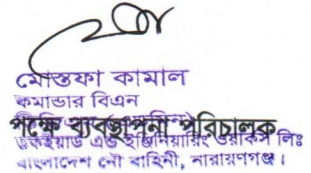 মোস্তফা কামাল
কমান্ডার বিএন
পক্ষে ব্যবস্থাপনা পরিচালক
ডকইয়ার্ড এন্ড ইঞ্জিনিয়ারিং ওয়ার্কস লিঃ
বাংলাদেশ নৌ বাহিনী, নারায়ণগঞ্জ।